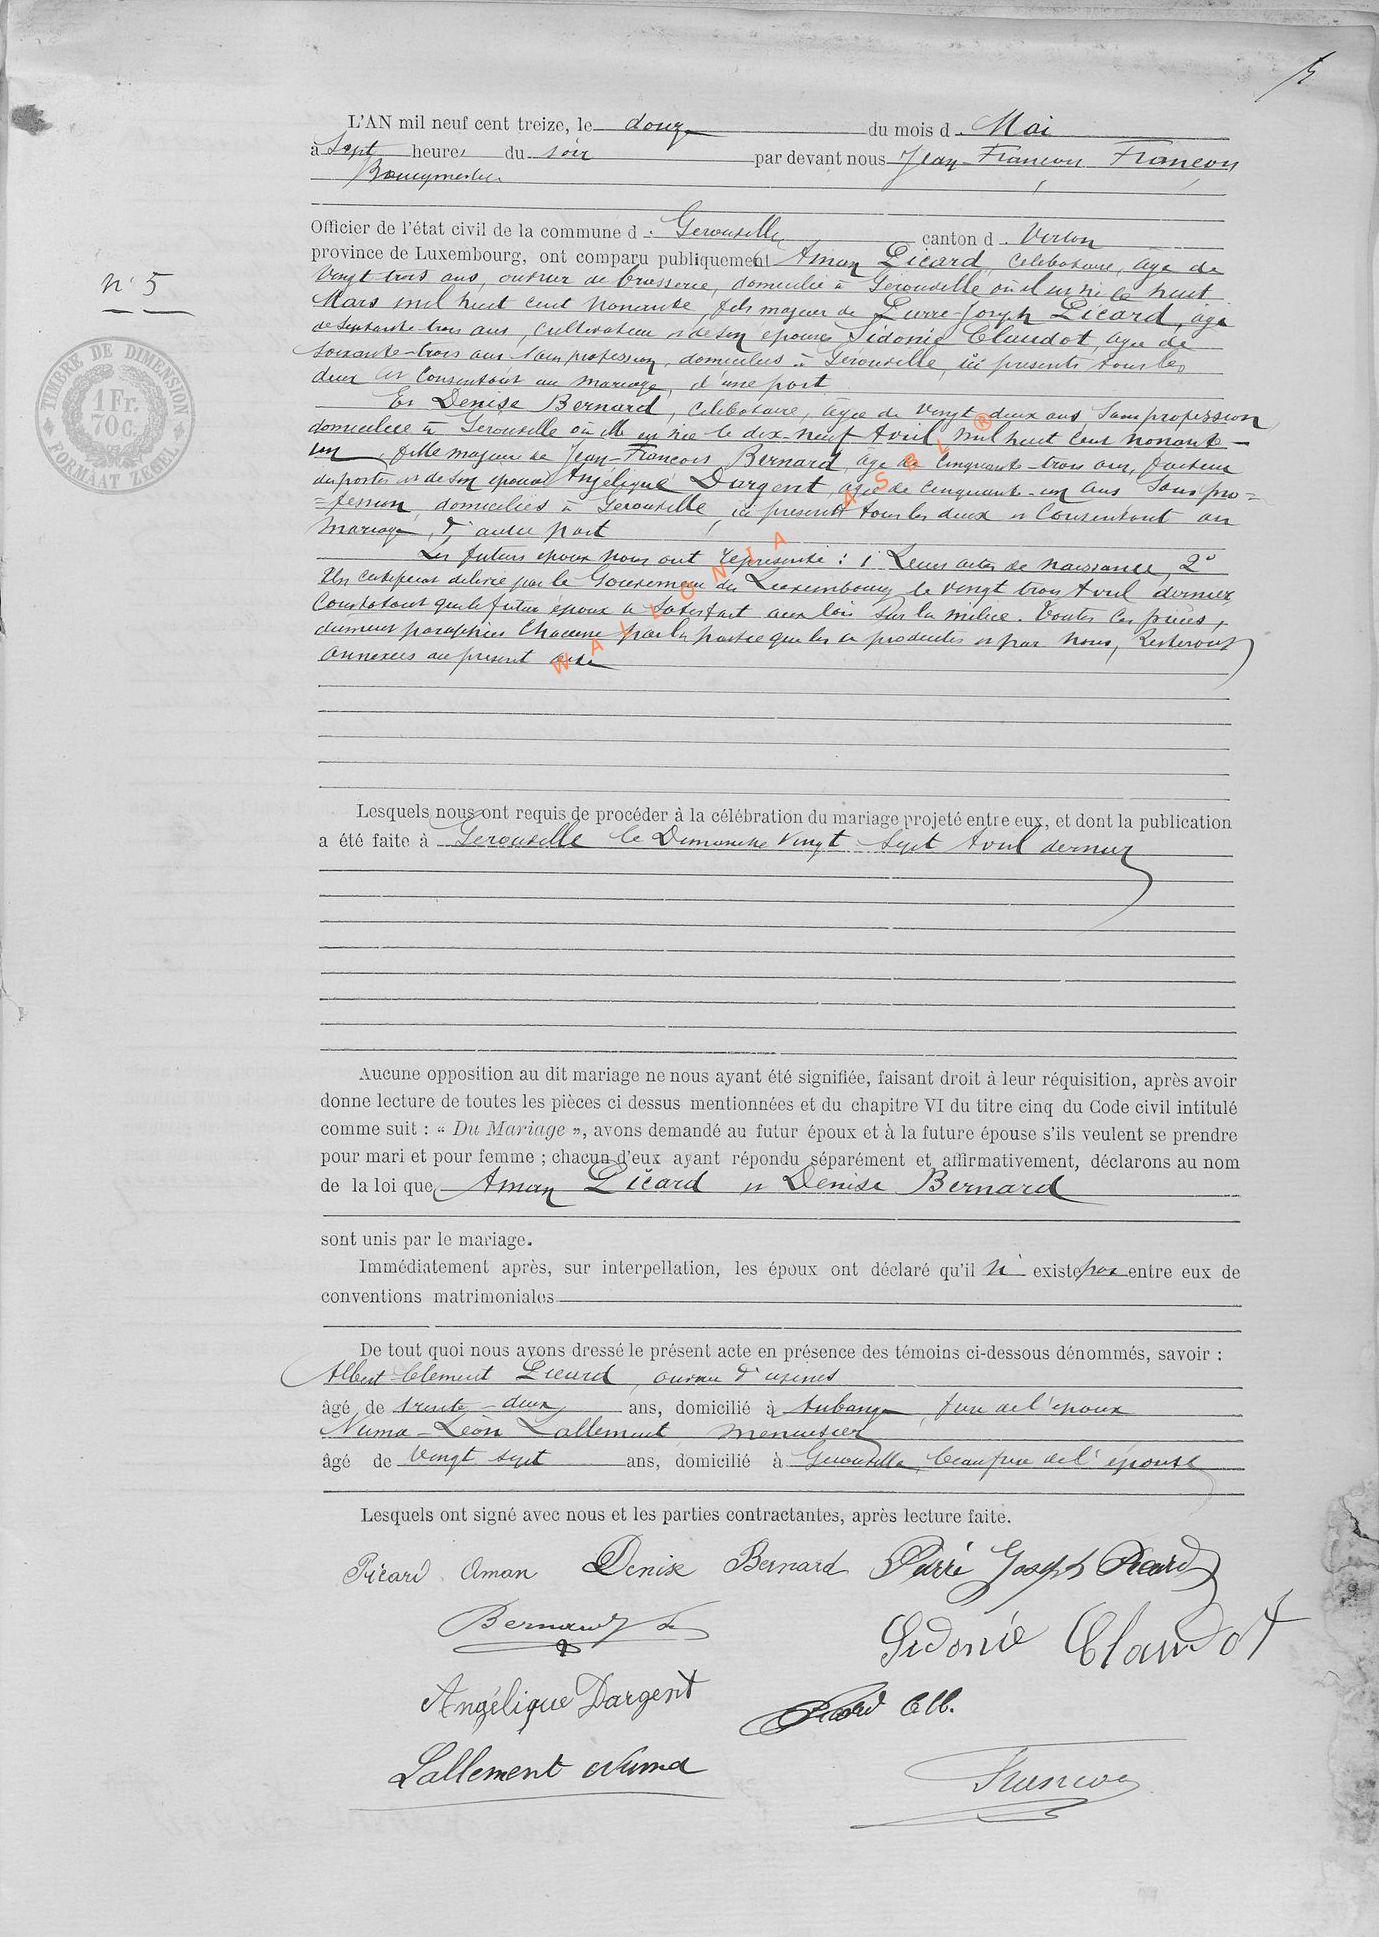 L'AN mil neuf cent treize, le douze du mois d Mai
à Sept heures du soir par devant nous Jean-François François
Bourgmestre
Officier de l'état civil de la commune d Gerouville canton d Virton
province de Luxembourg, ont comparu publiquement Aman Picard, célibataire, âgé de
n° 5
vingt trois ans, ouvrier de brasserie, domicilié à Gerouville où il est né le huit
Mars mil huit cent nonante, fils majeur de Pierre-Joseph Picard, âgé
de septante trois ans, cultivateur et de son épouse Sidonie Claudot, âgée de
soixante-trois ans sans profession, domiciliés à Gerouville, ici présents tous les
deux et consentant au mariage, d'une part
TIMBRE DE DIMENSION
1 Fr.
70 c.
FORMAAT ZEGEL
Et Denise Bernard, célibataire, âgée de vingt deux ans sans profession
domiciliée à Gerouville où elle est née le dix-neuf Avril mil huit cent nonante-
un, fille majeure de Jean-François Bernard, âgé de cinquante-trois ans, facteur
des postes et de son épouse Angélique Dargent, âgée de cinquante-un ans sans pro=
=fession, domiciliés à Gerouville, ici présents tous les deux et consentant au
mariage, d'autre part
Les futurs époux nous ont représenté : 1° Leurs actes de naissance, 2°
Un certificat délivré par le Gouverneur du Luxembourg le vingt trois Avril dernier,
constatant que le futur époux a satisfait aux lois sur la milice. Toutes ces pièces,
dûment paraphées chacune par la partie qui les a produites et par nous, resteront
annexées au présent acte
WALLONIA ASBL ®
Lesquels nous ont requis de procéder à la célébration du mariage projeté entre eux, et dont la publication
a été faite à Gerouville le Dimanche vingt sept Avril dernier
Aucune opposition au dit mariage ne nous ayant été signifiée, faisant droit à leur réquisition, après avoir
donne lecture de toutes les pièces ci dessus mentionnées et du chapitre VI du titre cinq du Code civil intitulé
comme suit : « Du Mariage », avons demandé au futur époux et à la future épouse s'ils veulent se prendre
pour mari et pour femme ; chacun d'eux ayant répondu séparément et affirmativement, déclarons au nom
de la loi que Aman Picard et Denise Bernard
sont unis par le mariage.
Immédiatement après, sur interpellation, les époux ont déclaré qu'il n' existe pas entre eux de
conventions matrimoniales
De tout quoi nous avons dressé le présent acte en présence des témoins ci-dessous dénommés, savoir :
Albert Clement Picard, ouvrier d'usines
âgé de trente-deux ans, domicilié à Aubange, frère de l'époux
Numa-Léon Lallement menuisier
âgé de vingt sept ans, domicilié à Gerouville, beau frère de l'épouse
Lesquels ont signé avec nous et les parties contractantes, après lecture faite.
Picard Aman Denise Bernard Pierre Joseph Picard
Bernard
Sidonie Claudot
Angélique Dargent
Picard Alb.
Lallement Numa
François